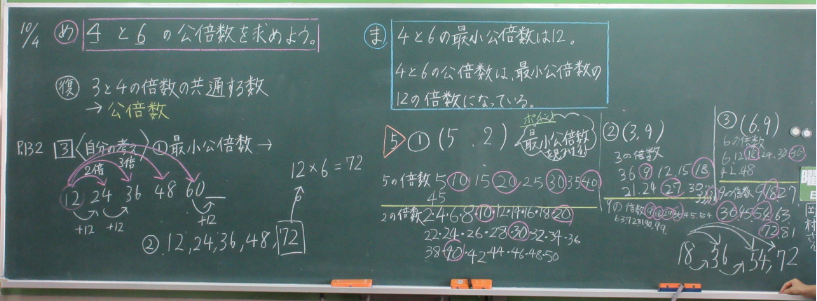 10/4
め 4 と 6 の公倍数を求めよう。
復 3と4の倍数の共通する数
→公倍数
P132 3 〈自分の考え〉 ① 最小公倍数→
2倍 3倍
12 24 36 48 60
+12 +12 +12
12×6=72
② 12,24,36,48,72
ま 4と6の最小公倍数は12。
4と6の公倍数は、最小公倍数の
12の倍数になっている。
5 ① (5,2)
ポイント
最小公倍数
5の倍数 5 10 15 20 25 30 35 40
45
2の倍数 2・4・6・8・10・12・14・16・18・20
22・24・26・28・30・32・34・36
38・40・42・44・46・48・50
② (3,9)
3の倍数
3 6 9 12,15 18
21,24 27 30
③ (6,9)
6の倍数
42・48
9の倍数 9 18 27
36 45 54 63
72 81
18 36 54,72